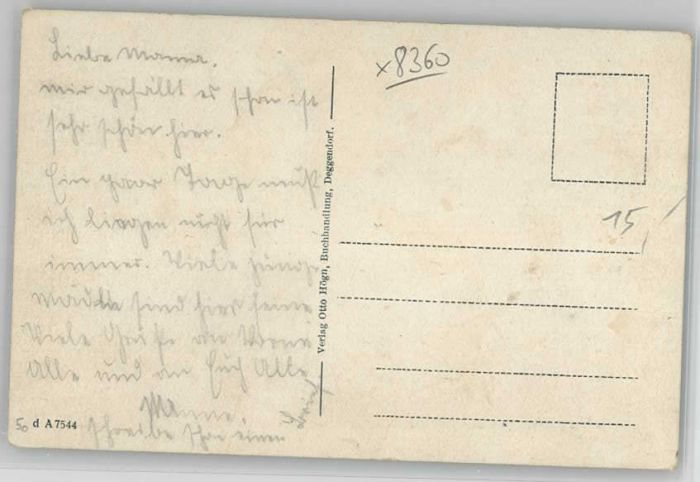 Liebe Mama.
mir gefällt es schon ist
sehr schön hier.
Ein paar Tage muß
ich liegen nicht für
immer. Viele junge
Mädchen sind hier
Viele Grüße an
Alle und an Euch Alle
schreibe einen
Verlag Otto Högn, Buchhandlung, Deggendorf.
x8360
15
50 d A 7544